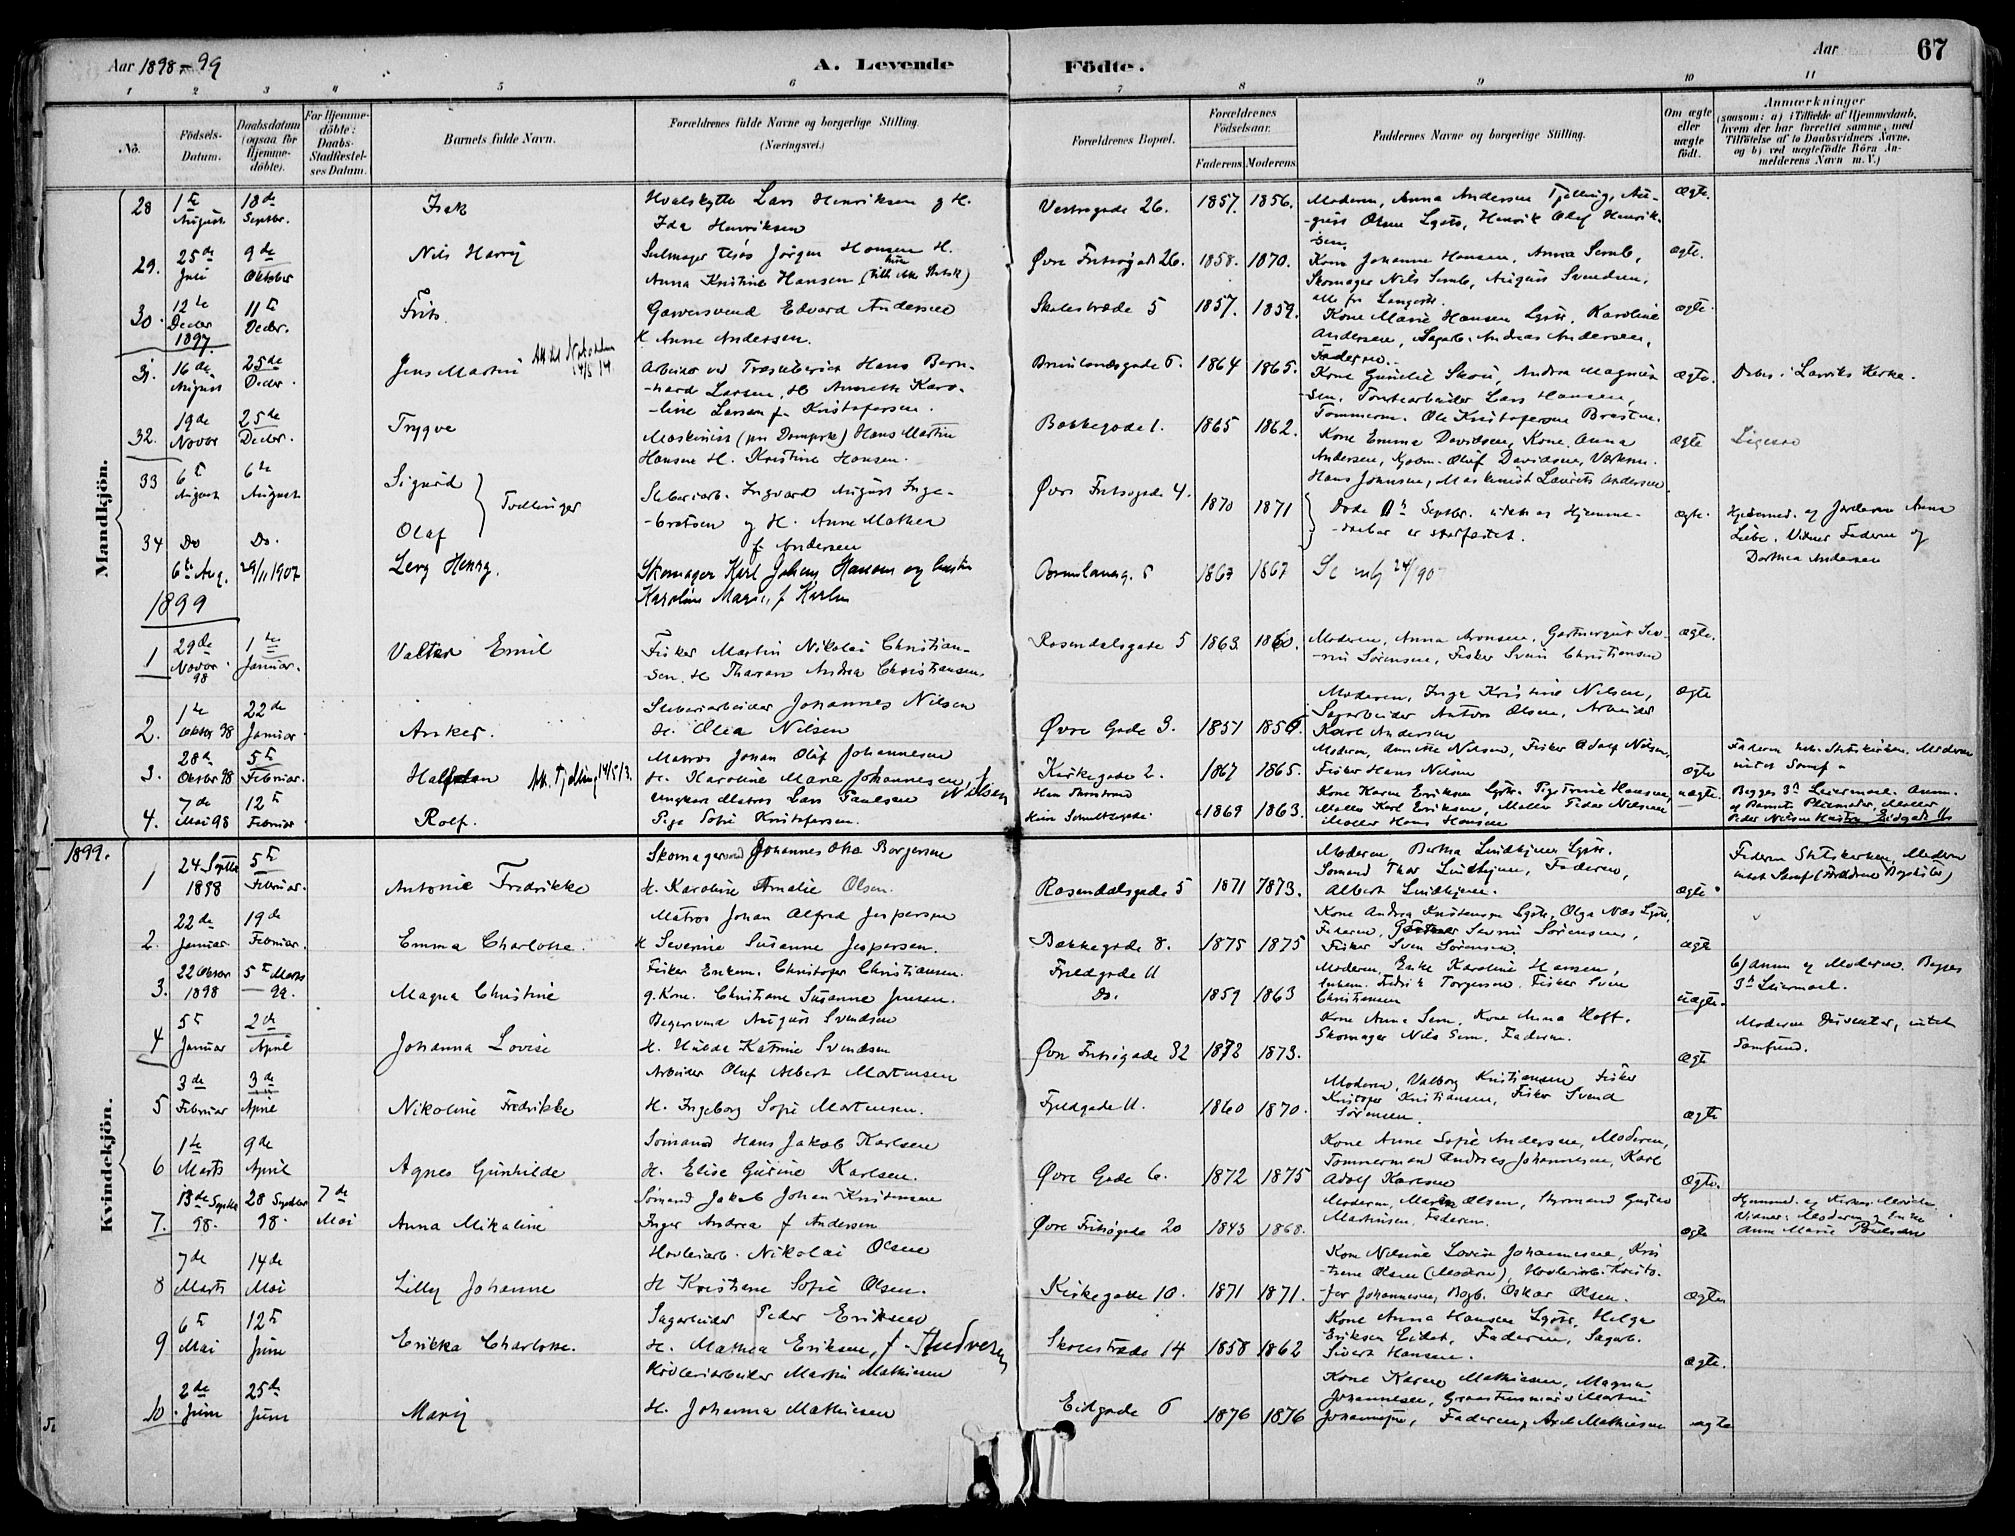 Aar 1898-99
A. Levende
Födte.
Aar
67
1 2 3 4 5 6 7 8 9 10 11
No.
Födsels-Datum.
Daabsdatum (ogsaa for Hjemme-döbte).
For Hjemme-döbte: Daabs-Stadfæstel-ses Datum.
Barnets fulde Navn.
Forældrenes fulde Navne og borgerlige Stilling.
(Næringsvei.)
Forældrenes Bopæl.
Forældrenes Födselsaar.
Faderens Moderens
Faddernes Navne og borgerlige Stilling.
Om ægte eller uægte födt.
Anmærkninger
(saasom: a) i Tilfælde af Hjemmedaab,
hvem der har forrettet samme, med
Tilföielse af to Daabsvidners Navne,
og b) ved uægtefödte Börn An-
melderens Navn m. V.)
Mandkjön.
28 1te August 18de Septbr. Isak
Hvalskytte Lars Henriksen g H.
Ida Henriksen
Vestregade 26. 1857. 1856.
Moderen, Anna Andersen Tjølling, Au-
-gust Olsen Lysts, Henrik Olaf Henrik-
sen
ægte.
29. 25de Juli 9de Oktober Nils Harry
Jørgen Hansen H.
Anna Kristine Hansen
Øvre Fritsøgade 26. 1858. 1870.
Kone Johanne Hansen, Anna Semb,
Skomager Nils Semb, August Svendsen,
alle fra Langestr.
ægte.
30. 12te Decbr 1897. 11te Decbr. Frits
Garversvend Edvard Andersen
& Anne Andersen.
Skolestræde 5 1857. 1859.
Kone Marie Hansen Lystr. Karoline
Andersen, Sagarb. Andreas Andersen,
Faderen.
ægte.
31. 16de August 25de Decbr. Jens Martin
Arbeider ved Træsliberiet Hans Bern-
-hard Larsen, H Annette Karo-
-line Larsen f. Kristofersen.
Brunlanesgade 6. 1864 1865.
Kone Gunelie Skou, Andrea Magnus-
sen, Lars Hansen,
Tømmerm. Ole Kristofersen
ægte.
Døbt i Larviks Kirke.
32. 19de Novbr 25de Decbr. Trygve
Maskinist Hans Martin
Hansen H. Kristine Hansen.
Bakkegade 1. 1865 1862.
Kone Emma Davidsen, Kone Anna
Andersen, Olaf Davidsen,
Hans Johnsen, Maskinist Laurits Andersen
ægte
Ligesaa
33 6te August 6te August Sigurd
Tvillinger
34 Do Do. Olaf
Sliberiarb. Ingvard August Inge-
-bretsen og H. Anne Mathea
f. Andersen
Øvre Fritsøgade 4. 1870 1871
Døde Septbr. uden at Hjemme-
daaben er stadfæstet.
ægte.
Hjemmed. af Jordemor Anna
Liebe. Vidner Faderen og
Dorthea Andersen
6te Aug. 29/11 1907 Levy Henry.
Skomager Karl Johan Hansen og hustru
Karoline Marie, f. Karlsen
Brunlanesg. 5 1863 1867
1899
1 29de Novbr. 98 1te Januar. Valter Emil
Fisker Martin Nikolai Christian-
sen. H Tharan Andrea Christiansen
Rosendalsgade 5 1863. 1860.
Moderen, Anna Aronsen, Gartnergut Sev-
-rin Sørensen, Fisker Sven Christiansen
ægte.
2. 1te Oktbr 98 22de Januar. Anker.
Sliberiarbeider Johannes Nilsen
H. Olea Nilsen
Øvre Gade 3. 1851 1856
Moderen, Inga Kristine Nilsen,
Sagarbeider Anton Olsen, Arbeider
Karl Andersen
ægte
3. 28de Oktbr 98 5te Februar. Halfdan
Matros Johan Olaf Johannesen
H. Karoline Marie Johannesen, f.
Nilsen
Kirkegade 2. 1867 1865.
Moderen, Annette Nilsen, Fisker Adolf Nilsen,
Fisker Hans Nilsen
ægte
4. 7de Mai 98 12te Februar. Rolf.
Ungkarl Matros Lars Paulsen
Pige Sofie Kristofersen.
1869 1863.
Kone Karen Eriksen Lystr. Pige Trine Hansen,
Møller Karl Eriksen, Møller Peder Nilsen
Møller Hans Hansen
uægte.
Begges 3de Leiermaal. Anm.
Kvindekjön.
1899.
1 24 Septbr 1898 5te Februar. Antonie Fredrikke
Skomagersvend Johannes Olai Borgersen
H. Karoline Amalie Olsen.
Rosendalsgade 5 1871 1873.
Moderen, Bertha Lindhjem Lystr.
Sømand Thor Lindhjem, Faderen,
Albert Lindhjem.
ægte.
Faderen Statskirken, Moderen
2. 22de Januar 19de Februar. Emma Charlotte.
Matros Johan Alfred Jespersen
H Severine Susanne Jespersen.
Bakkegade 8. 1875 1875
Kone Andrea Kristensen Lystr, Olga Næs Lystr,
Faderen, Severin Sørensen,
Fisker Sven Sørensen.
ægte
3. 22 Oktbr 1898 5te Marts 99. Magna Christine
Fisker Enkem. Christofer Christiansen.
g. Kone. Christiane Susanne Jensen.
Fjeldgade 11
Do. 1859 1863
Moderen, Enke Karoline Hansen,
Enkem. Fredrik Torgersen, Fisker Sven
Christiansen
uægte.
b) Anm. af Moderen. Begges
3de Leiermaal.
4 5te Januar 2de April Johanna Lovise
Bøgersvend August Svendsen
H. Hulda Katrine Svendsen
Øvre Fritsøgade 32 1872 1873.
Kone Anna Sem, Kone Anna Hoff.
Skomager Nils Sem, Faderen.
ægte
Moderen Dissenter, intet
Samfund.
5 3de Februar 3de April Nikoline Fredrikke
Arbeider Oluf Albert Martinsen
H. Ingeborg Sofie Martinsen.
Fjeldgade 11. 1860 1870.
Moderen, Valborg Kristiansen Fisker
Kristofer Kristiansen, Fisker Svend
Sørensen
ægte
6 1te Marts 9de April Agnes Gunhilde
Sømand Hans Jakob Karlsen
H. Elise Gurine Karlsen.
Øvre Gade 6. 1872 1875
Kone Anne Sofie Andersen, Moderen,
Tømmermand Andreas Johannesen, Karl
Adolf Karlsen
ægte.
7. 13de Septbr 98. 28 Septbr 98. 7de Mai Anna Mikaline
Sømand Jakob Johan Kristensen
Inger Andrea f Andersen
Øvre Fritsøgade 20 1843 1868.
Moderen, Maren Olsen, Styrmand Gustav
Mathisen, Faderen.
ægte
Vidner: Moderen og Enke
Anne Marie Paulsen
8 7de Marts 14de Mai Lilly Johanne
Høvleriarb. Nikolai Olsen
H Kristiane Sofie Olsen.
Kirkegade 10. 1871 1871.
Kone Nilsine Lovise Johannesen, Kris
-tiane Olsen (Moderen), Høvleriarb. Kristo-
fer Johannesen, Bøgb. Oskar Olsen.
ægte
9 6te Mai 12te Juni Erikka Charlotte.
Sagarbeider Peder Eriksen
H. Mathea Eriksen, f. Andersen
Skolestræde 14 1858 1862
Kone Anna Hansen Lystr, Helge
Eriksen Eidet, Faderen, Sagarb.
Sivert Hansen.
ægte.
10 2de Juni 25de Juni Mary
Høvleriarbeider Martin Mathiesen
H. Johanna Mathiesen
Eidgade 6 1876 1876
Kone Karen Mathiesen, Magna
Johannesen,
Johannesen, Faderen, Axel Mathiesen
ægte